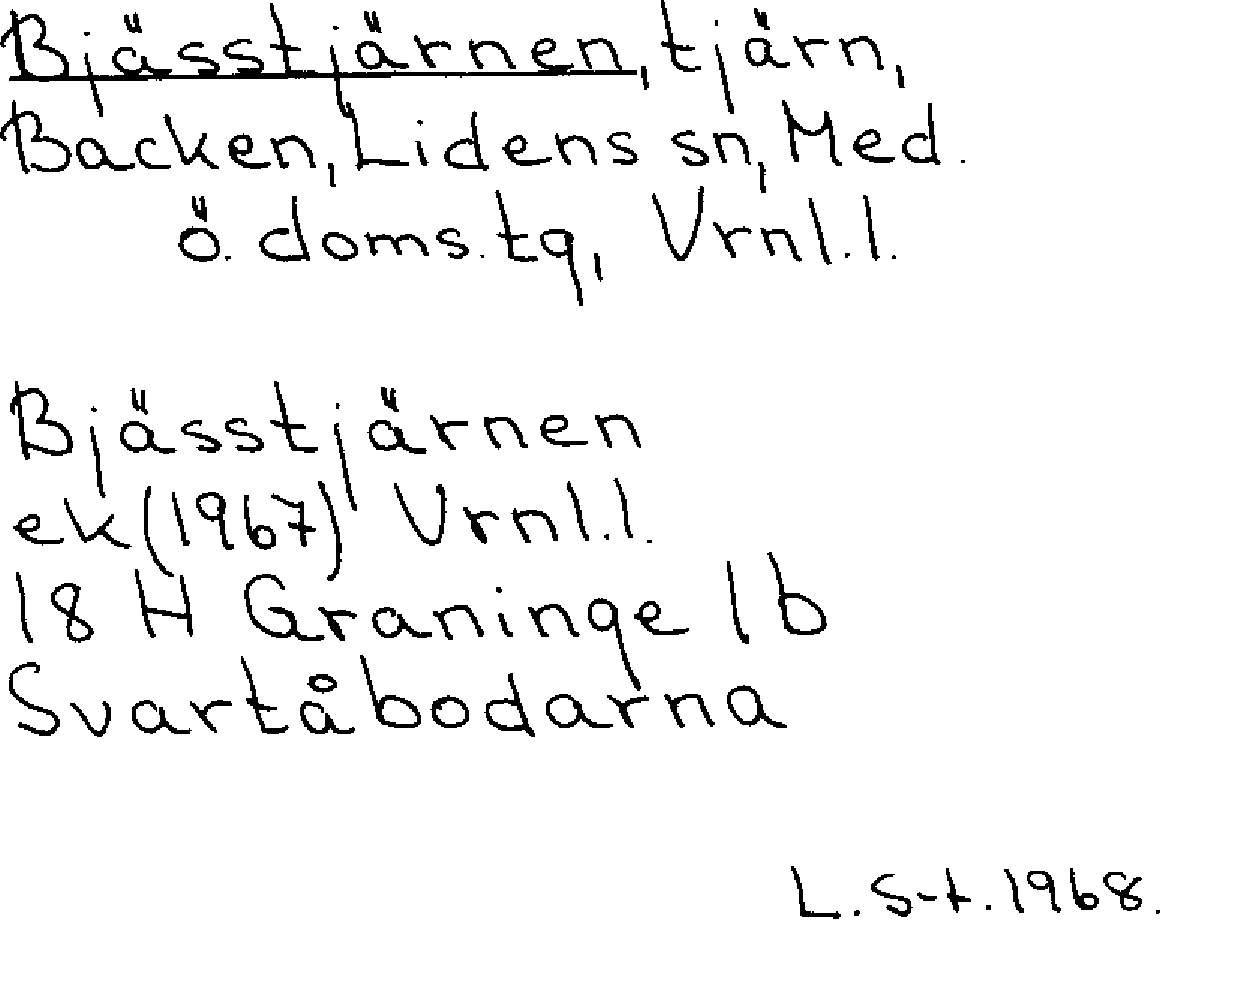 Bjässtjärnen, tjärn,
Backen, Lidens sn, Med.
ö. doms.tg, Vrnl.l.
Bjässtjärnen
ek (1967) Vrnl.l.
18 H Graninge 1b
Svartåbodarna
L. S-t. 1968.